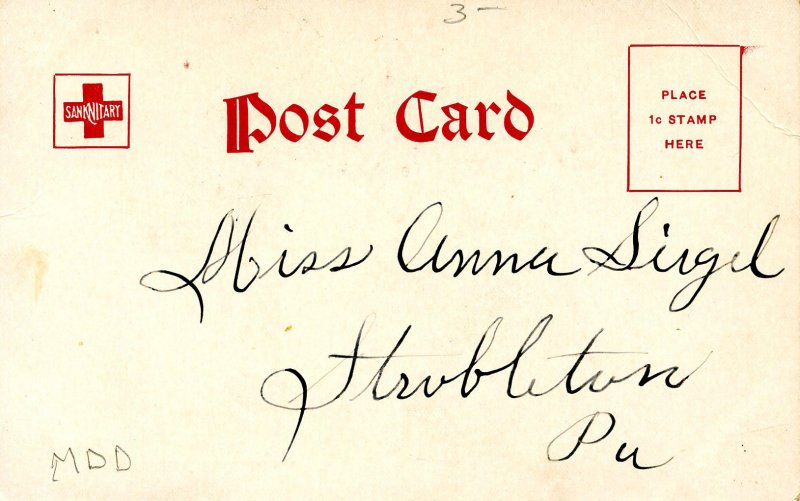 3-
SANKNITARY
Post Card
PLACE
1c STAMP
HERE
Miss Anna Sirgel
Strobleton
Pa
MDD